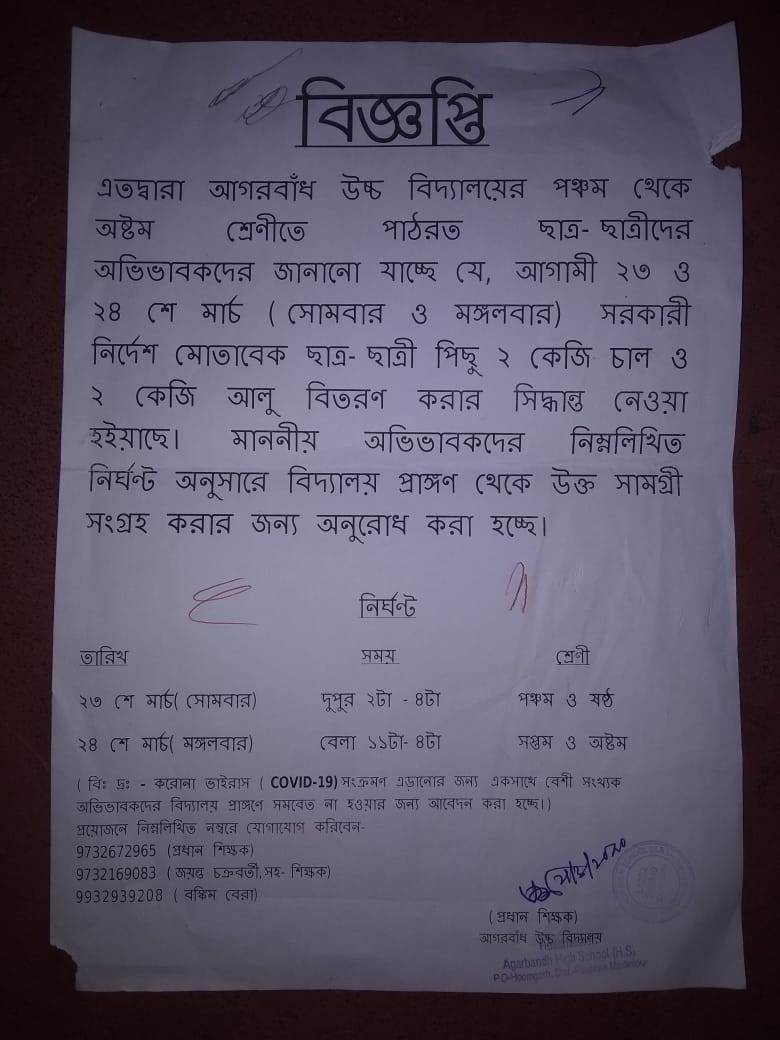 বিজ্ঞপ্তি
এতদ্বারা আগরবাঁধ উচ্চ বিদ্যালয়ের পঞ্চম থেকে
অষ্টম শ্রেণীতে পাঠরত ছাত্র- ছাত্রীদের
অভিভাবকদের জানানো যাচ্ছে যে, আগামী ২৩ ও
২৪ শে মার্চ ( সোমবার ও মঙ্গলবার) সরকারী
নির্দেশ মোতাবেক ছাত্র- ছাত্রী পিছু ২ কেজি চাল ও
২ কেজি আলু বিতরণ করার সিদ্ধান্ত নেওয়া
হইয়াছে। মাননীয় অভিভাবকদের নিম্নলিখিত
নির্ঘন্ট অনুসারে বিদ্যালয় প্রাঙ্গণ থেকে উক্ত সামগ্রী
সংগ্রহ করার জন্য অনুরোধ করা হচ্ছে।
নির্ঘন্ট
তারিখ সময় শ্রেণী
২৩ শে মার্চ( সোমবার) দুপুর ২টা - ৪টা পঞ্চম ও ষষ্ঠ
২৪ শে মার্চ( মঙ্গলবার) বেলা ১১টা- ৪টা সপ্তম ও অষ্টম
( বিঃ দ্রঃ - করোনা ভাইরাস ( COVID-19) সংক্রমণ এড়ানোর জন্য একসাথে বেশী সংখ্যক
অভিভাবকদের বিদ্যালয় প্রাঙ্গণে সমবেত না হওয়ার জন্য আবেদন করা হচ্ছে।)
প্রয়োজনে নিম্নলিখিত নম্বরে যোগাযোগ করিবেন-
9732672965 (প্রধান শিক্ষক)
9732169083 ( জয়ন্ত চক্রবর্তী,সহ- শিক্ষক)
9932939208 ( বঙ্কিম বেরা)
( প্রধান শিক্ষক)
আগরবাঁধ উচ্চ বিদ্যালয়
Agarbandh High School (H.S)